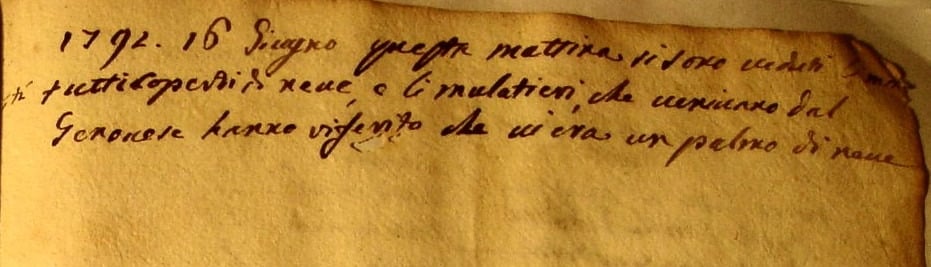 1792. 16 Giugno questa mattina si sono veduti
tutti coperti di neve, e li mulatieri, che venivano dal
Genovese hanno riferito che vi era un palmo di neve